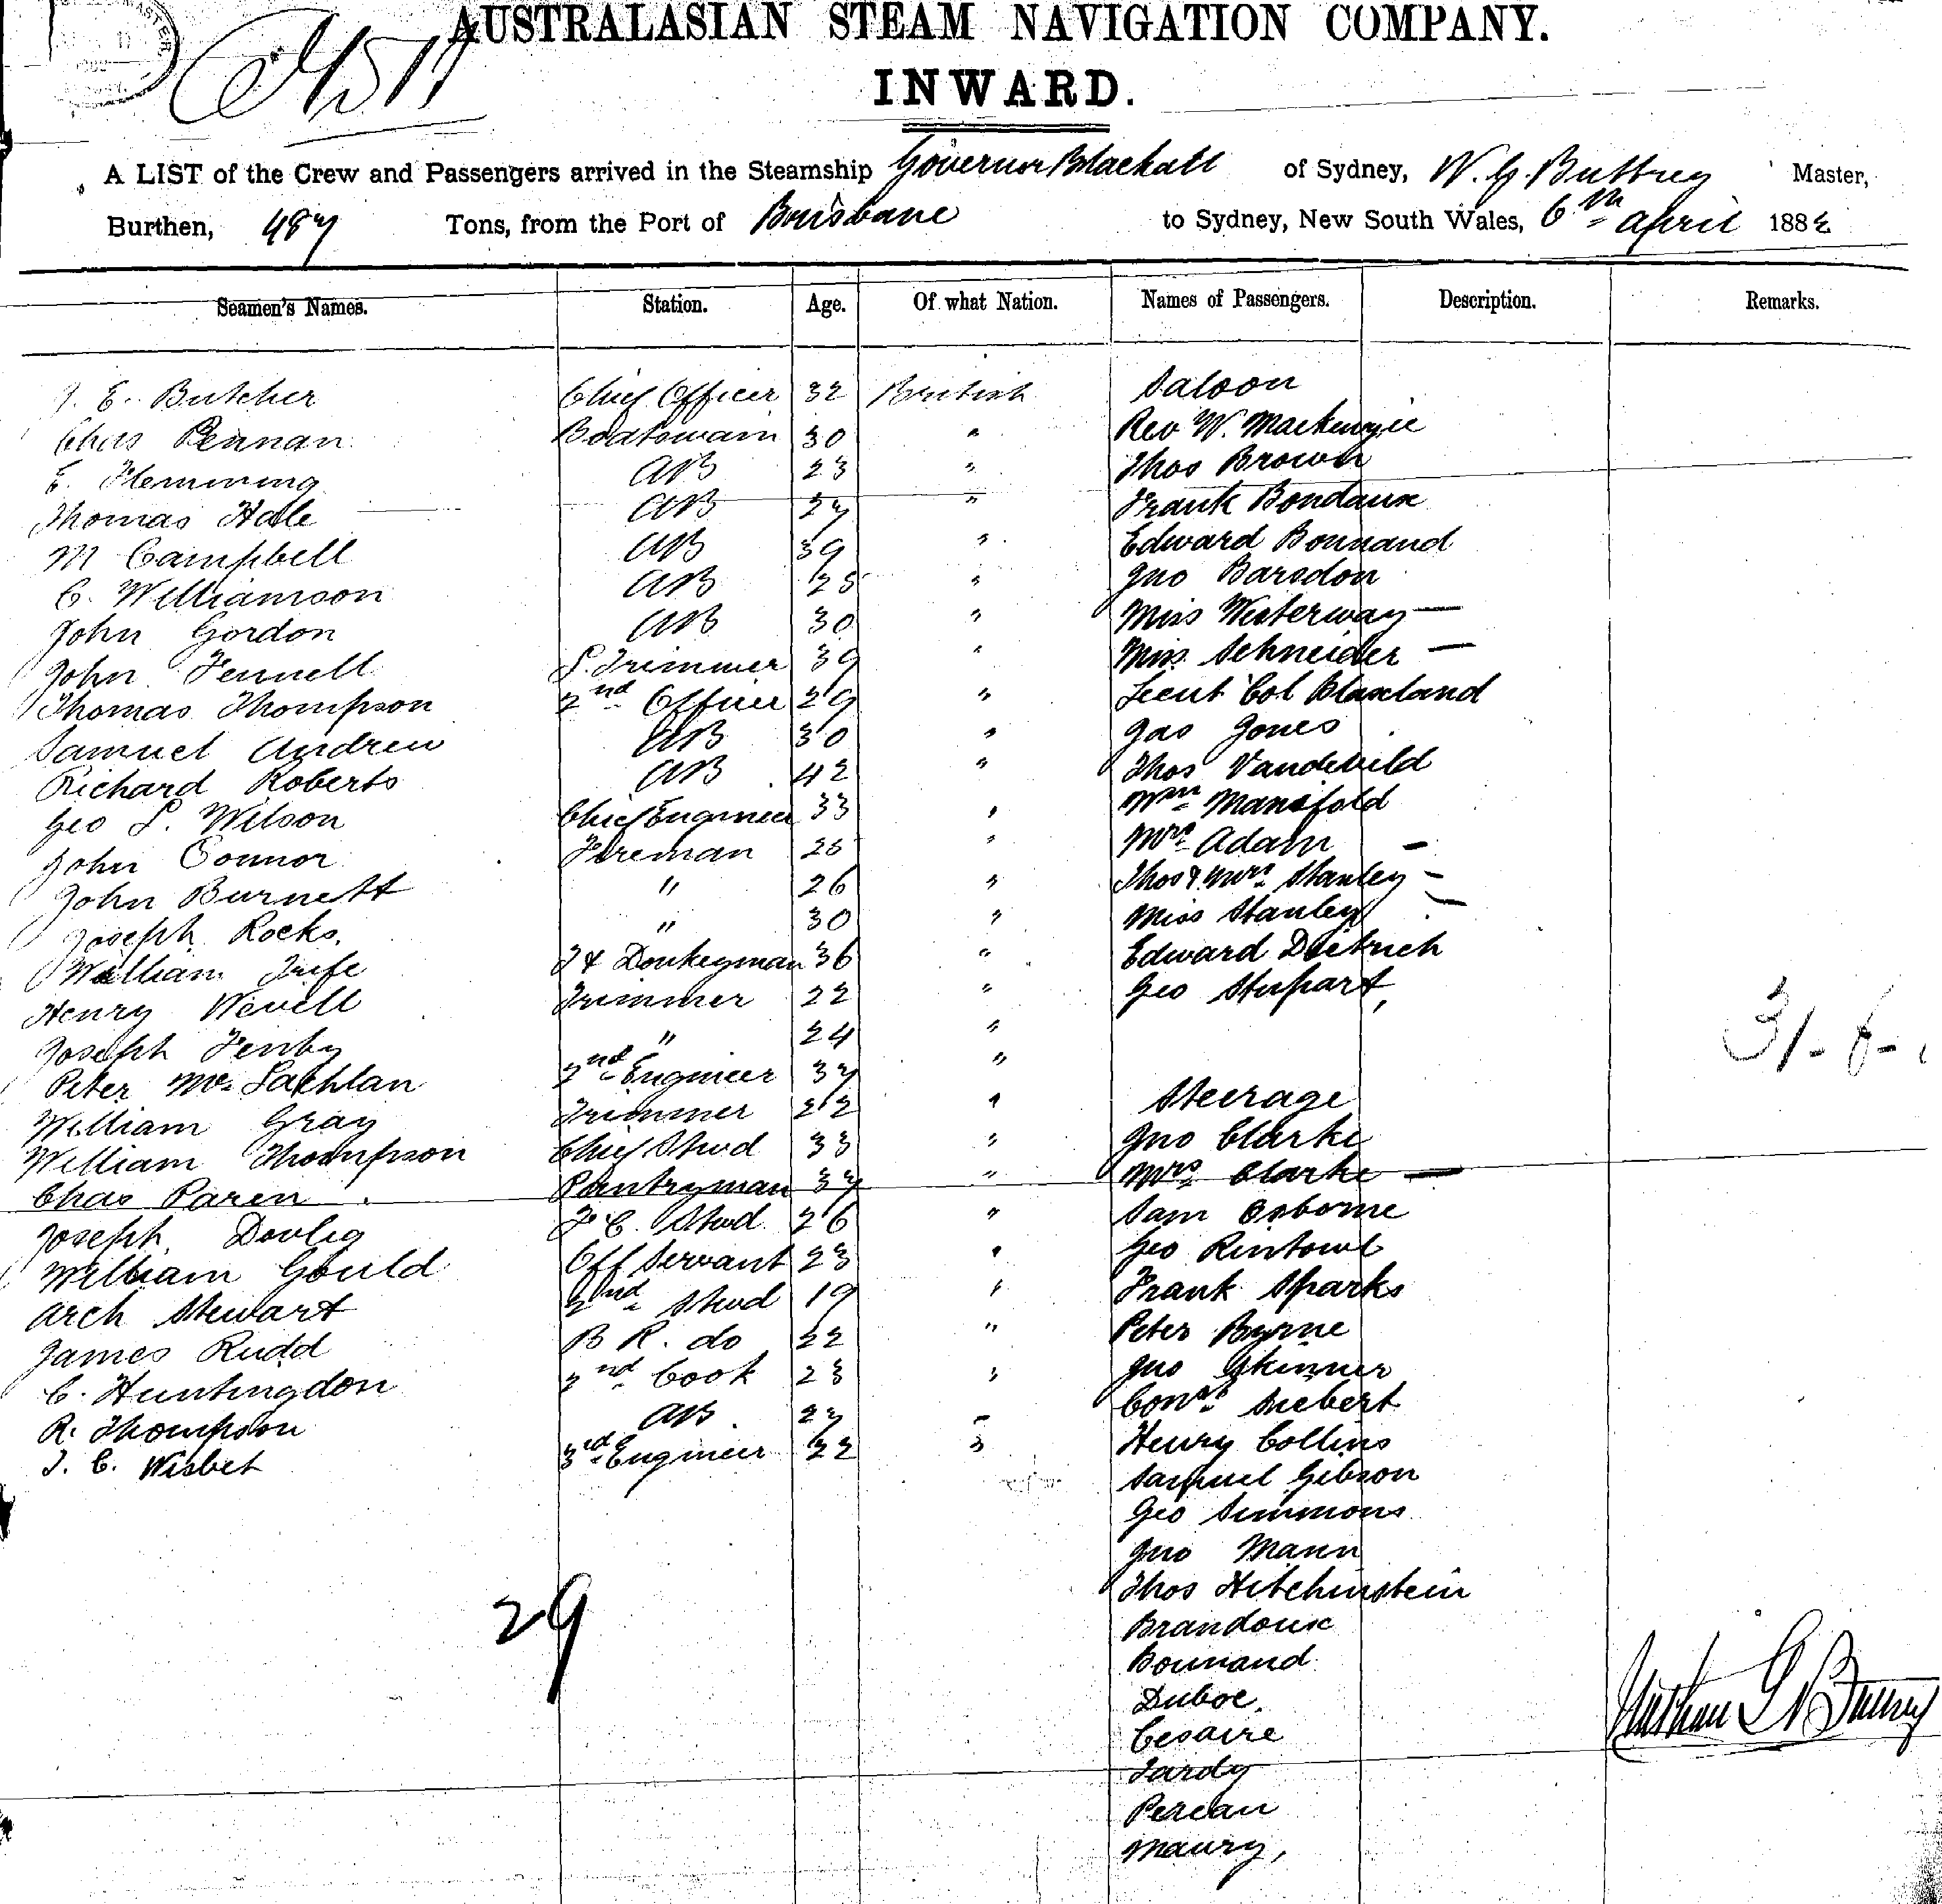 AUSTRALASIAN STEAM NAVIGATION COMPANY.
INWARD.
A LIST of the Crew and Passengers arrived in the Steamship Governor Blackall of Sydney, W. G. Buttrey Master,
Burthen, 487 Tons, from the Port of Brisbane to Sydney, New South Wales, 6th April 1882
Seamen's Names. Station. Age. Of what Nation. Names of Passengers. Description. Remarks.
J. E. Butcher Chief Officer 32 British Saloon
Chas Pennan Boatswain 30 " Rev W. Mackenzie
E. Flemming AB 23 " Thos Brown
Thomas Hale AB 27 " Frank Bondaux
M Campbell AB 39 " Edward Bonnand
C. Williamson AB 25 " Jno Barsdon
John Gordon AB 30 " Miss Westerway —
John Fennell S. Trimmer 39 " Miss Schneider —
Thomas Thompson 2nd Officer 29 " Lieut Col Blaxland
Samuel Andrew AB 30 " Jas Jones
Richard Roberts AB 42 " Thos Vandevild
Geo S. Wilson Chief Engineer 33 " Wm Manifold
John Connor Fireman 25 " Mrs Adam —
John Burnett " 26 " Thos & Mrs Stanley —
Joseph Rocks. " 30 " Miss Stanley —
William Fife F & Donkeyman 36 " Edward Dietrich
Henry Wevell Trimmer 22 " Geo Stupart,
Joseph Fenby " 24 "
Peter McLachlan 2nd Engineer 37 "
William Gray Trimmer 22 " Steerage
William Thompson Chief Stwd 33 " Jno Clarke
Chas Paren Pantryman 37 " Mrs Clarke —
Joseph F. C. Stwd. 26 " Sam Osborne
William Gould Off Servant 23 " Geo Rintowl
Arch Stewart 2nd Stwd 19 " Frank Sparks
James Rudd B R. do 22 " Peter Byrne
C. Huntingdon 2nd Cook 23 " Jno Skinner
R. Thompson AB. 27 " Siebert
J. C. Nisbet 3rd Engineer 22 " Henry Collins
Samuel Gibson
Geo Simmons
Jno Mann
Thos Hitchinstein
Brandoux
Bonnand
Duboe.
Cesaire
Tardy
Percan
Maury,
29